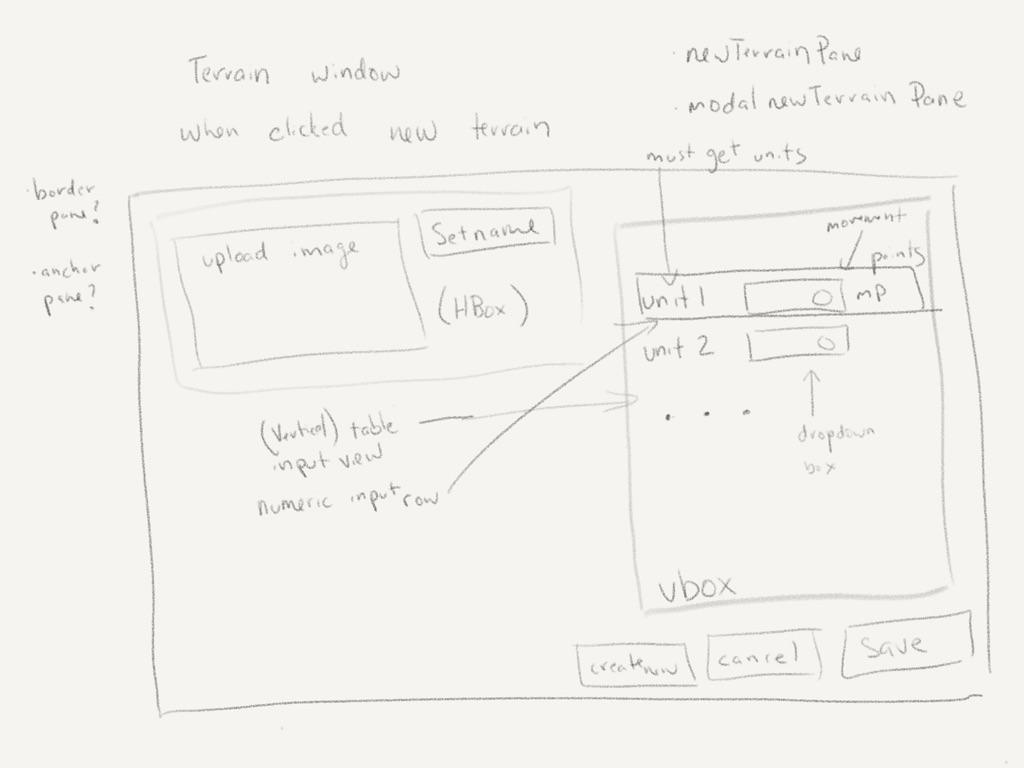 Terrain window
when clicked new terrain
· newTerrainPane
· modal newTerrain Pane
must get units
· border
pane?
· anchor
pane?
upload image
Setname
(HBox)
movement
points
unit 1 0 MP
unit 2 0
. . .
dropdown
box
(Vertical) table
input view
numeric input row
vbox
create new
cancel
Save